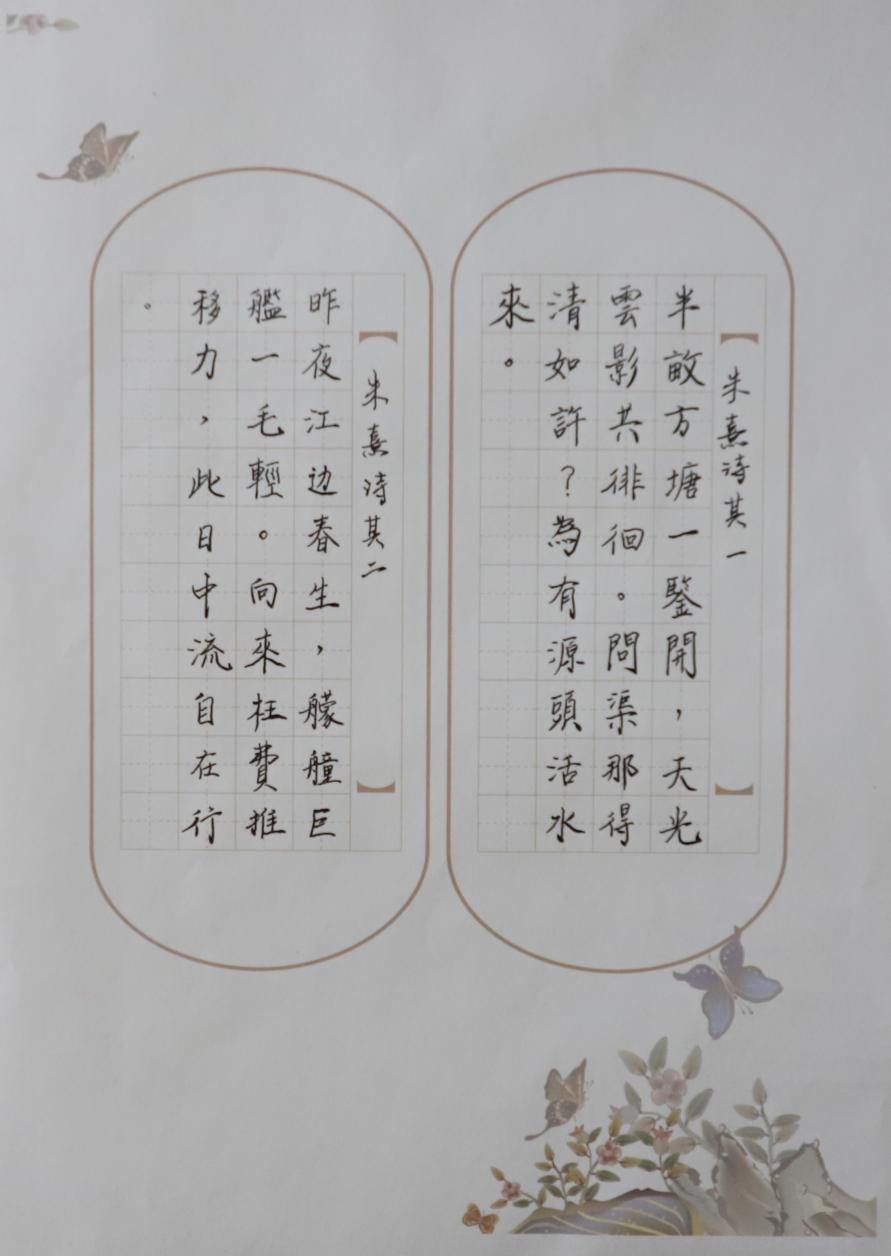 朱熹诗其一
半畝方塘一鑒開，天光
雲影共徘徊。問渠那得
清如許？為有源頭活水
來。
朱熹诗其二
昨夜江边春生，艨艟巨
艦一毛輕。向來枉費推
移力，此日中流自在行
。